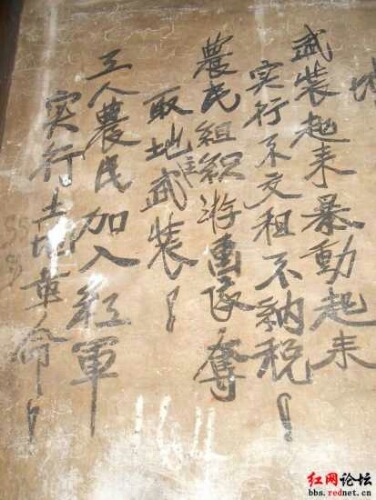 武装起来暴動起来
实行不交租不納税！
農民組織游擊隊奪
取地主武装！
工人農民加入紅軍
实行土地革命！
红网论坛
bbs.rednet.cn